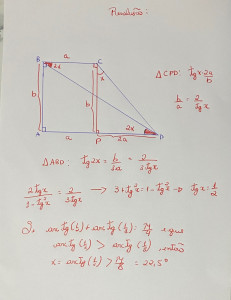 Resolução:
B a C
2x x
Δ CPD: tgx = 2a/b
b b
b/a = 2/tgx
2x
A a P 2a D
Δ ABD: tg2x = b/3a = 2/3tgx
2tgx/1-tg²x = 2/3tgx → 3tg²x = 1-tg²x → tgx = 1/2
Se arctg(1/2) + arctg(1/3) = π/4 e que
arctg(1/2) > arctg(1/3), então
x = arctg(1/2) > π/8 = 22,5°